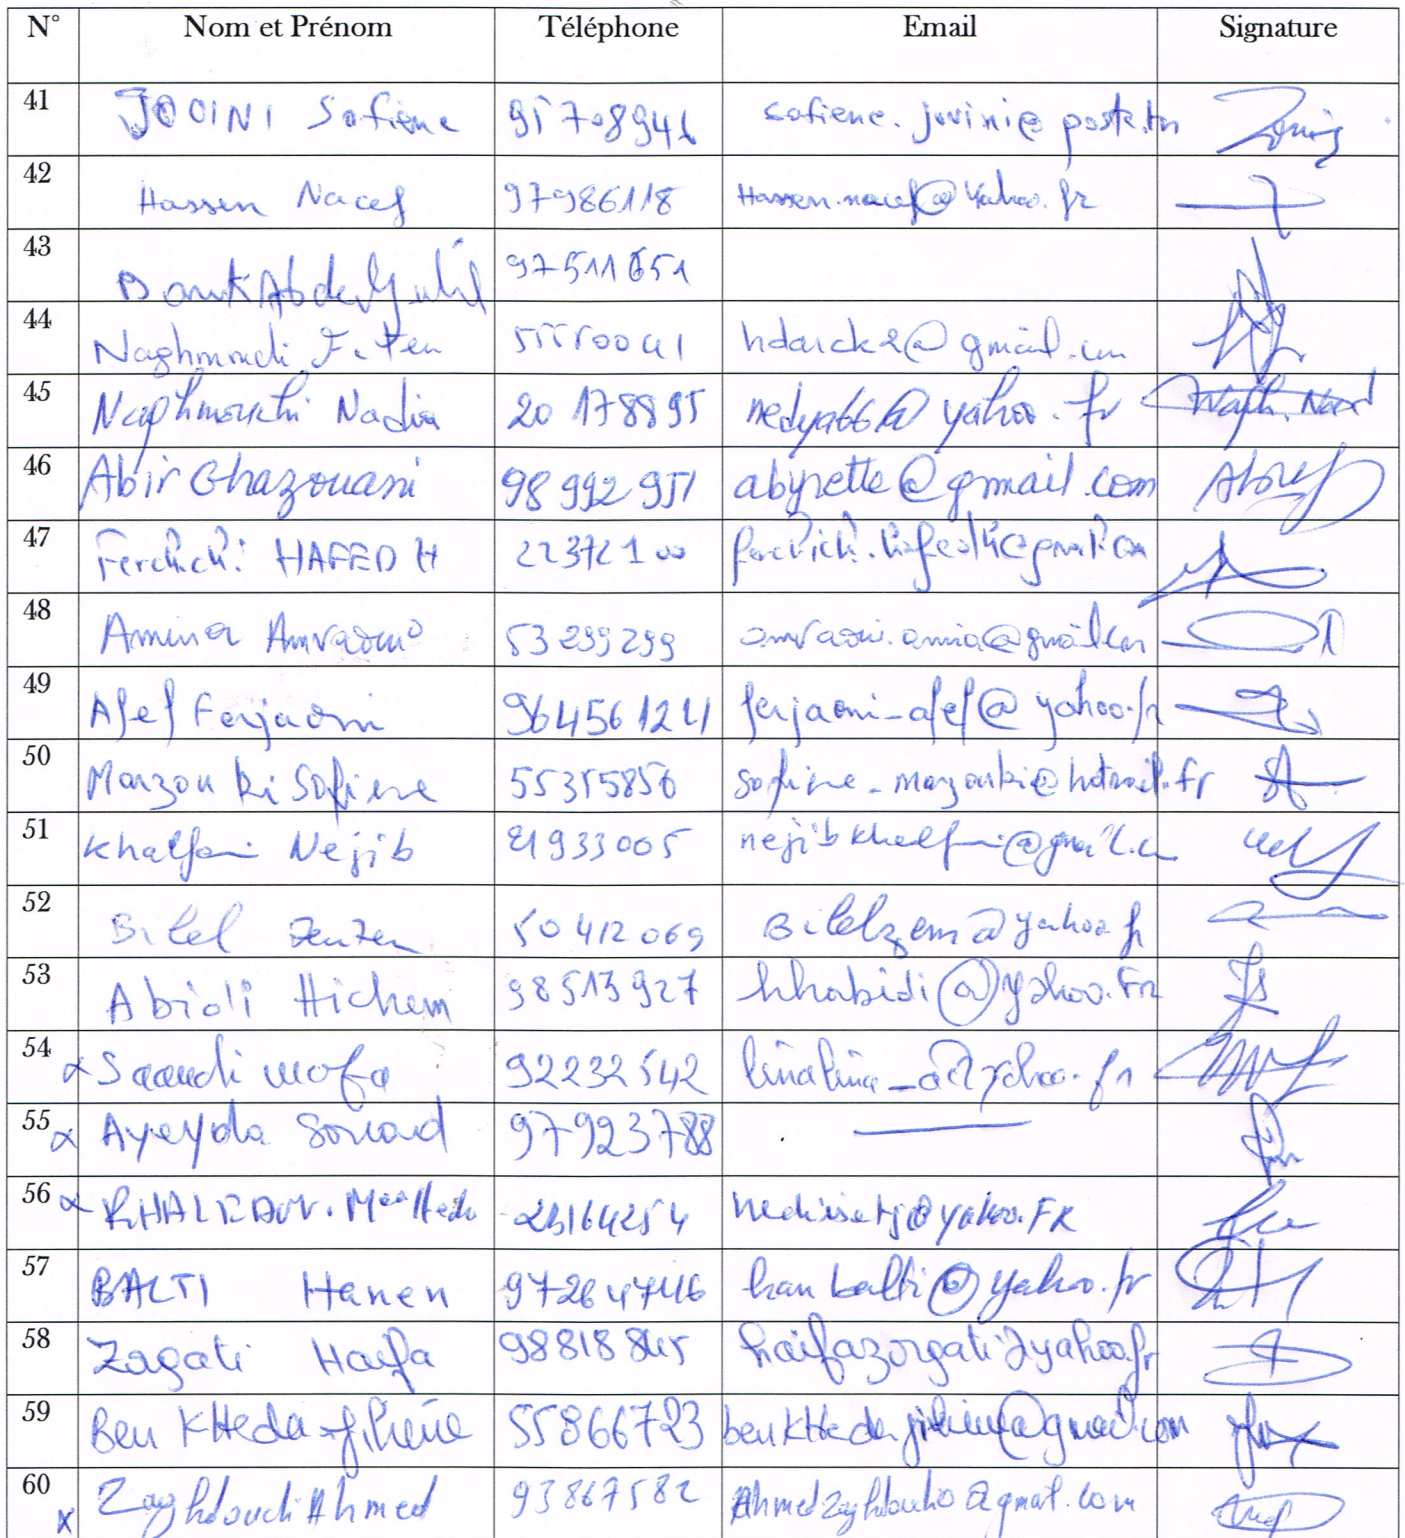 N° Nom et Prénom Téléphone Email Signature
41 JOOINI Sofiene 95708946 sofiene.jovini@poste.tn
42 Hassen Nacef 97986118 Hassen.nacef@Yahoo.fr
43 97511651
44 Naghmouchi Faten 55550041 hdarck2@gmail.com
45 Naghmouchi Nadia 20 178895 nedya66@yahoo.fr
46 Abir Ghazouani 98 992 951 abyrette@gmail.com
47 Ferchichi HAFEDH 22372100 ferchichi.hafedh@gmail.com
48 Amina Amraoui 53 299299 amraoui.amia@gmail.com
49 Afef Ferjaoni 964561241 ferjaoni_afef@yahoo.fr
50 Marzouki Sofiene 55355856 sofiene_marzouki@hotmail.fr
51 Khalfani Nejib 21933005
52 Bilel Zenzen 50 412 069
53 Abidi Hichem 98513927 hhabidi@yahoo.Fr
54 Saaudi wofa 92232542 linalina_a@yahoo.fr
55 Ayeyda Souad 97923788
56
57 BALTI Hanen han balti@yahoo.fr
58 Zagati Haifa 98818845 haifazorgati@yahoo.fr
59 Ben KHeda Jihene 55866723 benkHeda jihene@gmail.com
60 Zaghdoudi Ahmed 93867582